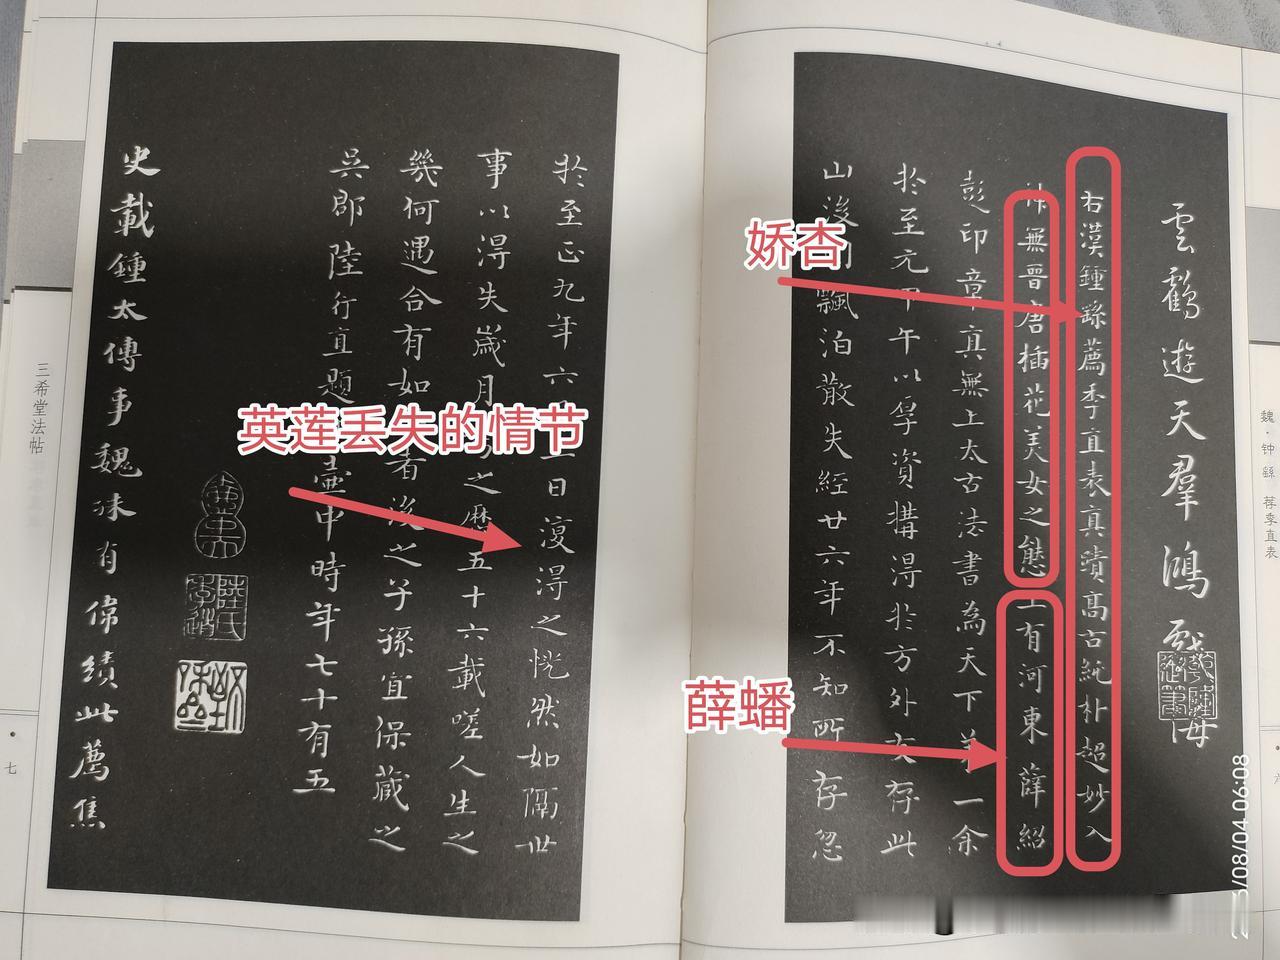 雲鶴遊天羣鴻戲海
右漢鍾繇薦季直表真蹟高古純朴超妙入
神無晉唐插花美女之態上有河東薛紹
彭印章真無上太古法書為天下第一余
於至元甲午以厚資購得於方外友存此
山後飄泊散失經廿六年不知所存忽
於至正九年六日復得之恍然如隔世
事以得失歲月之歷五十六載嗟人生之
幾何遇合有如者後之子孫宜保藏之
吳郡陸行直題壺中時年七十有五
史載鍾太傅事魏殊有偉績此薦焦
娇杏
薛蟠
英莲丢失的情节
魏·钟繇 荐季直表
三希堂法帖
七
/08/04 06:08